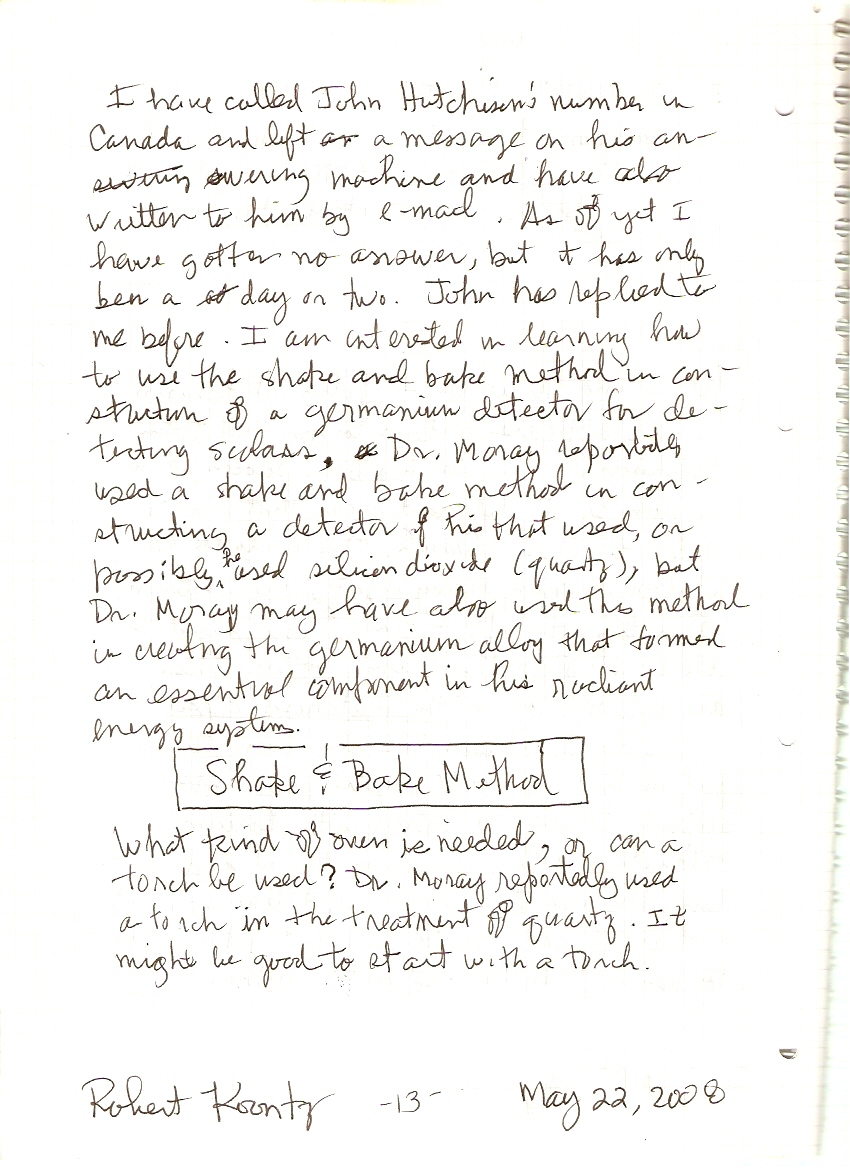 I have called John Hutchison's number in
Canada and left a message on his an-
swering machine and have also
written to him by e-mail. As of yet I
have gotten no answer, but it has only
ben a day or two. John has replied to
me before. I am interested in learning how
to use the shake and bake method in con-
struction of a germanium detector for de-
tecting scalars. Dr. Moray reportedly
used a shake and bake method in con-
structing a detector of his that used, or
possibly, he used silicon dioxide (quartz), but
Dr. Moray may have also used this method
in creating the germanium alloy that formed
an essential component in his radiant
energy system.
Shake & Bake Method
What kind of oven is needed, or can a
torch be used? Dr. Moray reportedly used
a torch in the treatment of quartz. It
might be good to start with a torch.
Robert Koontz -13- May 22, 2008